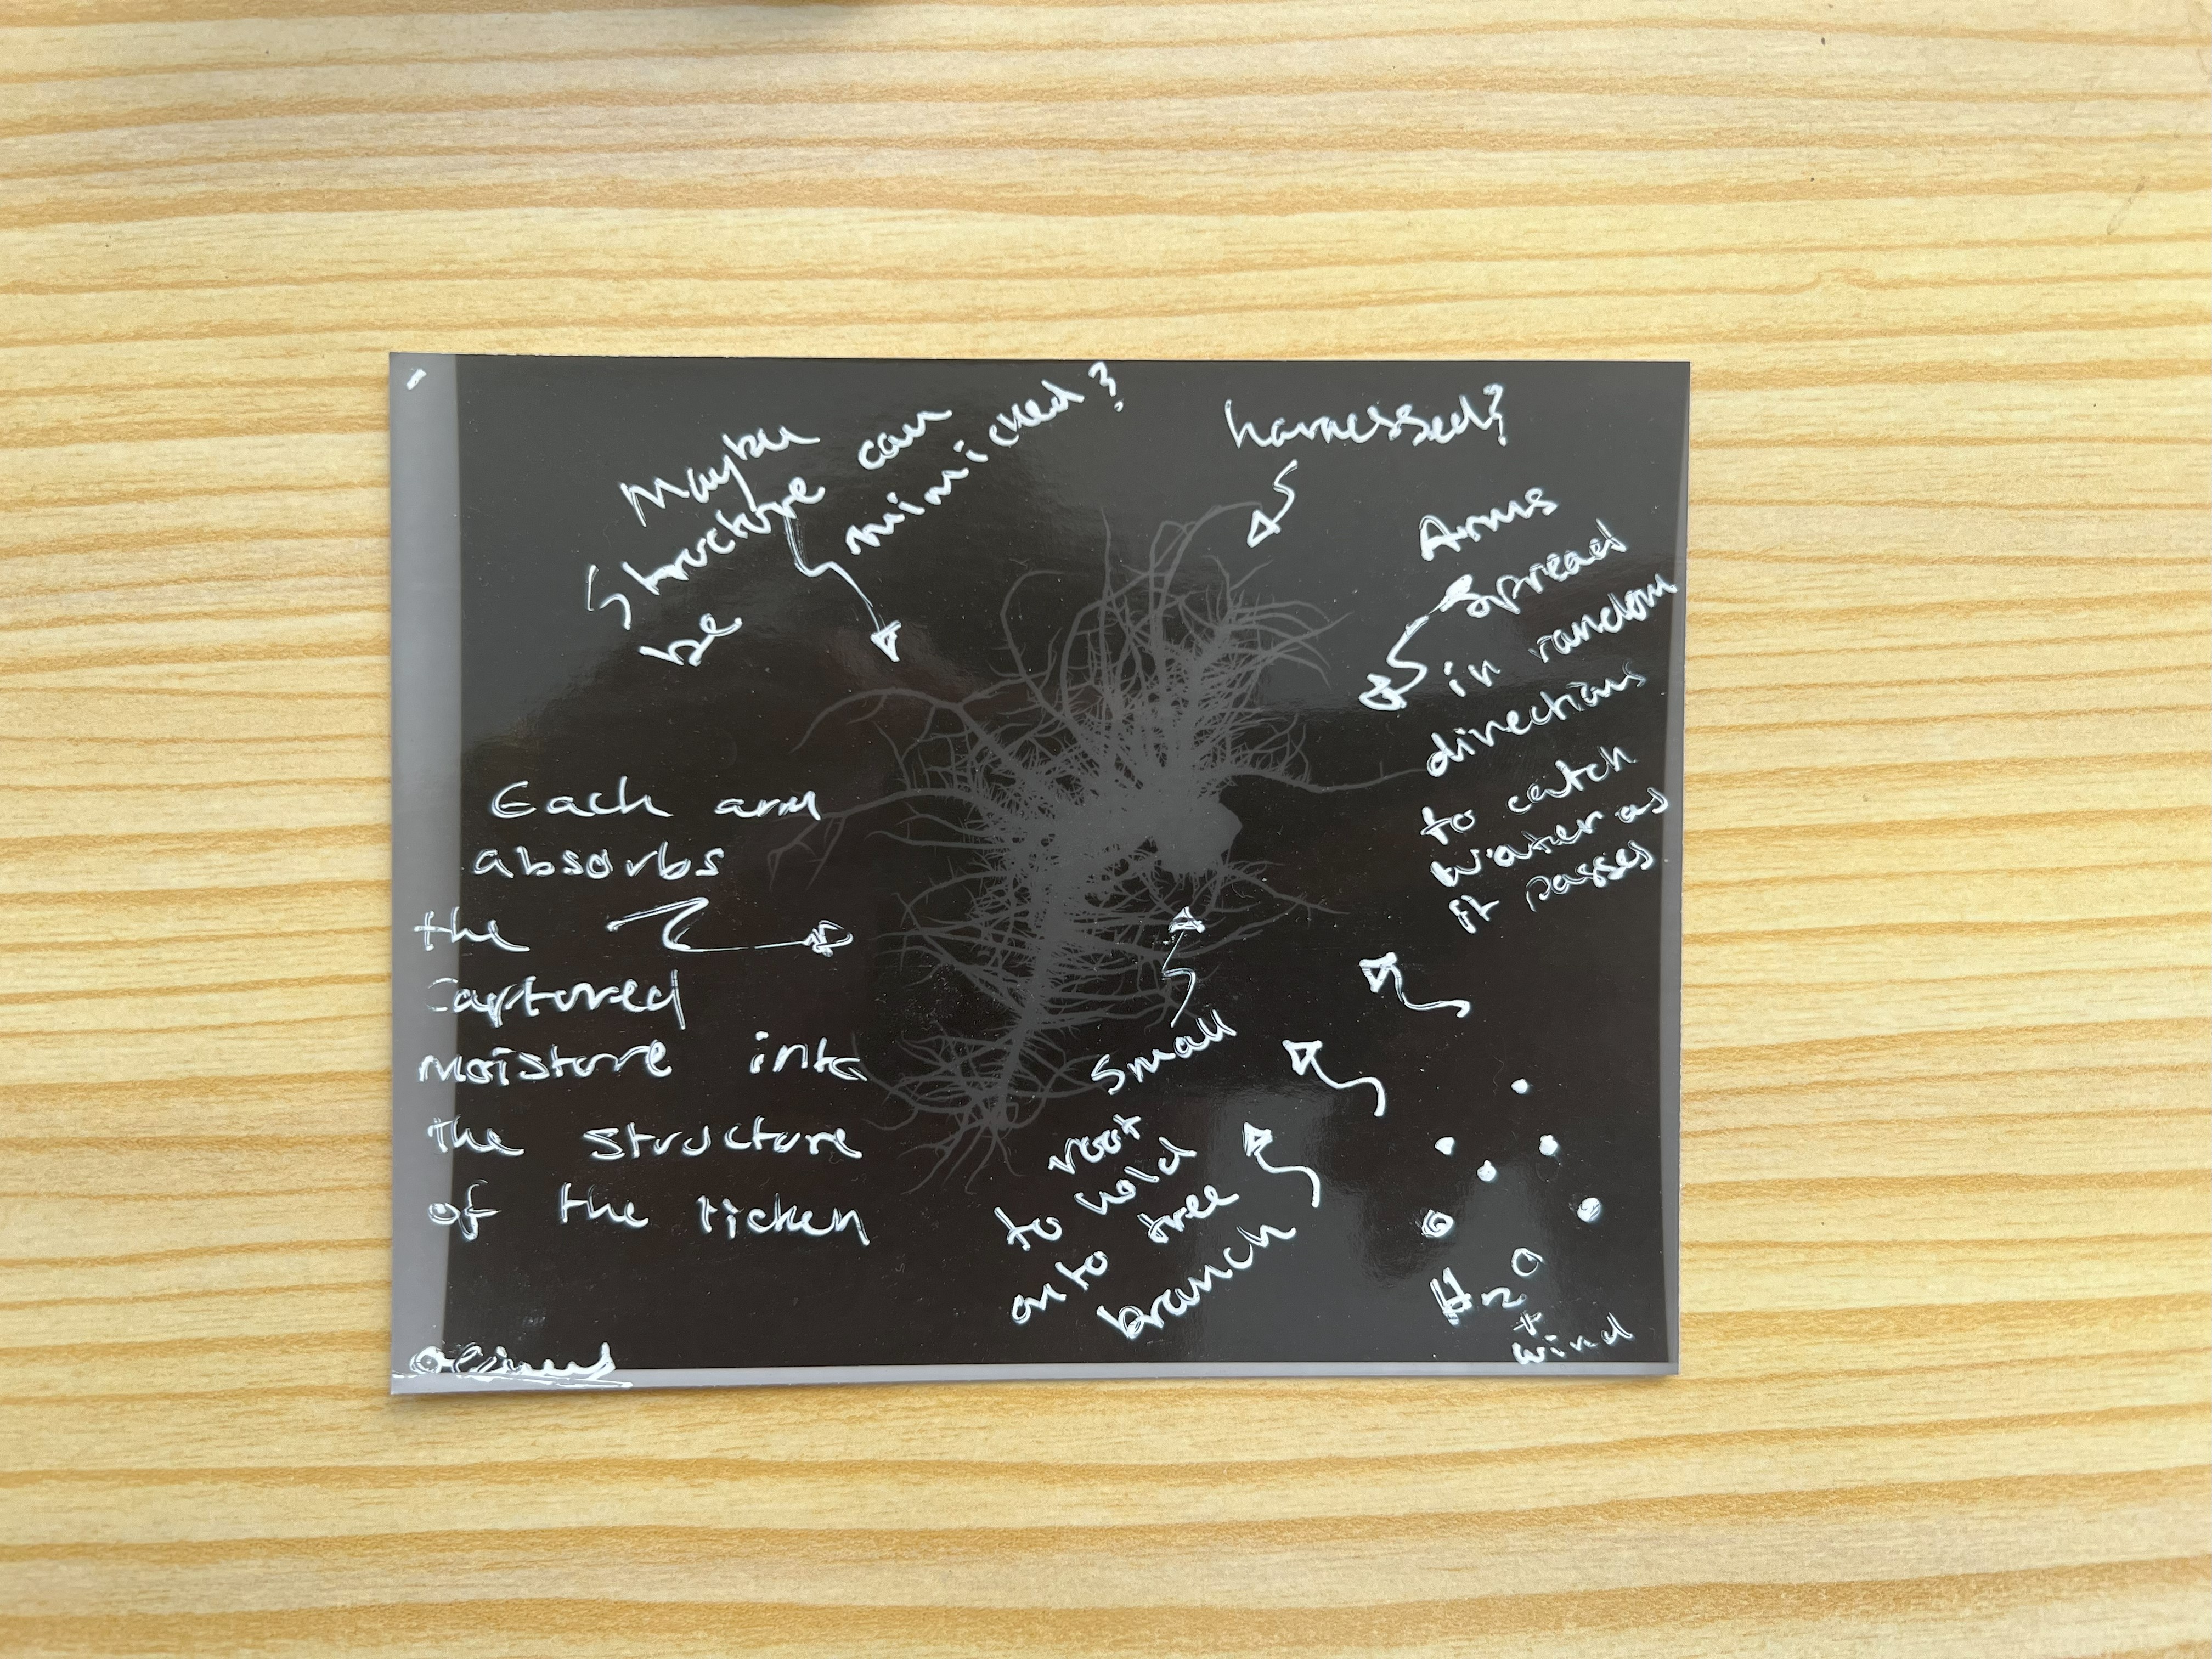 Maybe
structure can
be mimicked?
harnessed?
Arms
spread
in random
directions
to catch
water as
it passes
Each arm
absorbs
the
captured
moisture into
the structure
of the licken
Small
root
to hold
onto tree
branch
H2O
+
wind